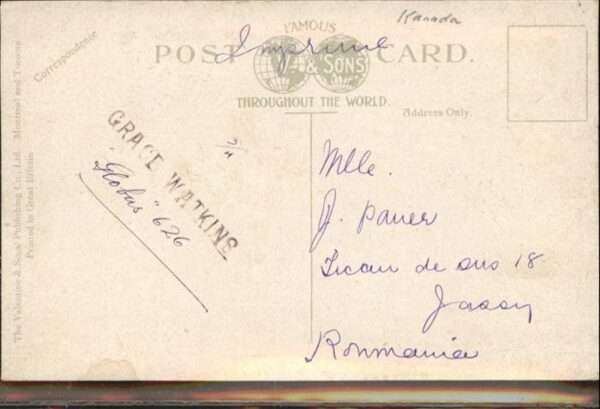 Kanada
FAMOUS
POST CARD.
Imprimé
& SONS
THROUGHOUT THE WORLD.
Address Only.
Correspondence
The Valentine & Sons' Publishing Co., Ltd. Montreal and Toronto
Printed in Great Britain
GRACE WATKINS
"Globus" 626
Mlle.
J. Pauer
18
Jassy
Ronmania